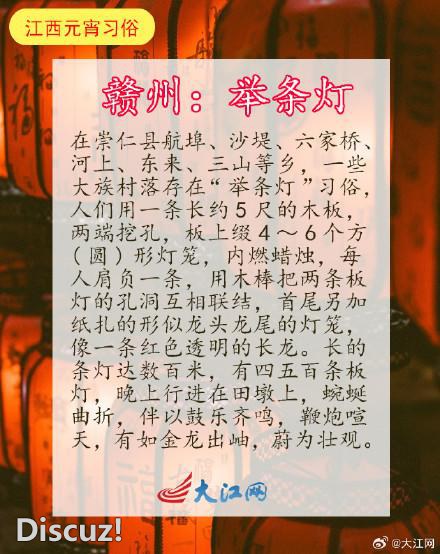 江西元宵习俗
赣州：举条灯
在崇仁县航埠、沙堤、六家桥、
河上、东来、三山等乡，一些
大族村落存在“举条灯”习俗，
人们用一条长约5尺的木板，
两端挖孔，板上缀4～6个方
(圆)形灯笼，内燃蜡烛，每
人肩负一条，用木棒把两条板
灯的孔洞互相联结，首尾另加
纸扎的形似龙头龙尾的灯笼，
像一条红色透明的长龙。长的
条灯达数百米，有四五百条板
灯，晚上行进在田墩上，蜿蜒
曲折，伴以鼓乐齐鸣，鞭炮喧
天，有如金龙出岫，蔚为壮观。
大江网
Discuz!
@大江网